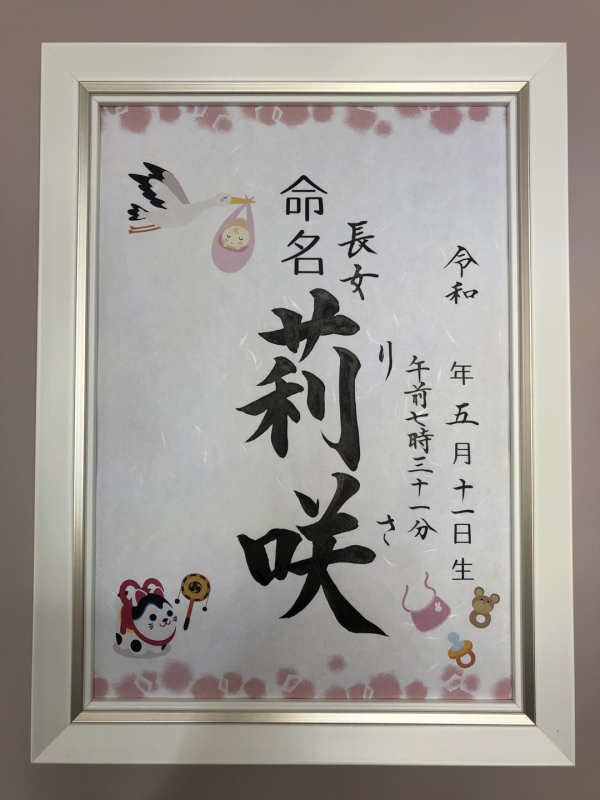 令和 年五月十一日生
午前七時三十一分
長女
りさ
命名 莉咲